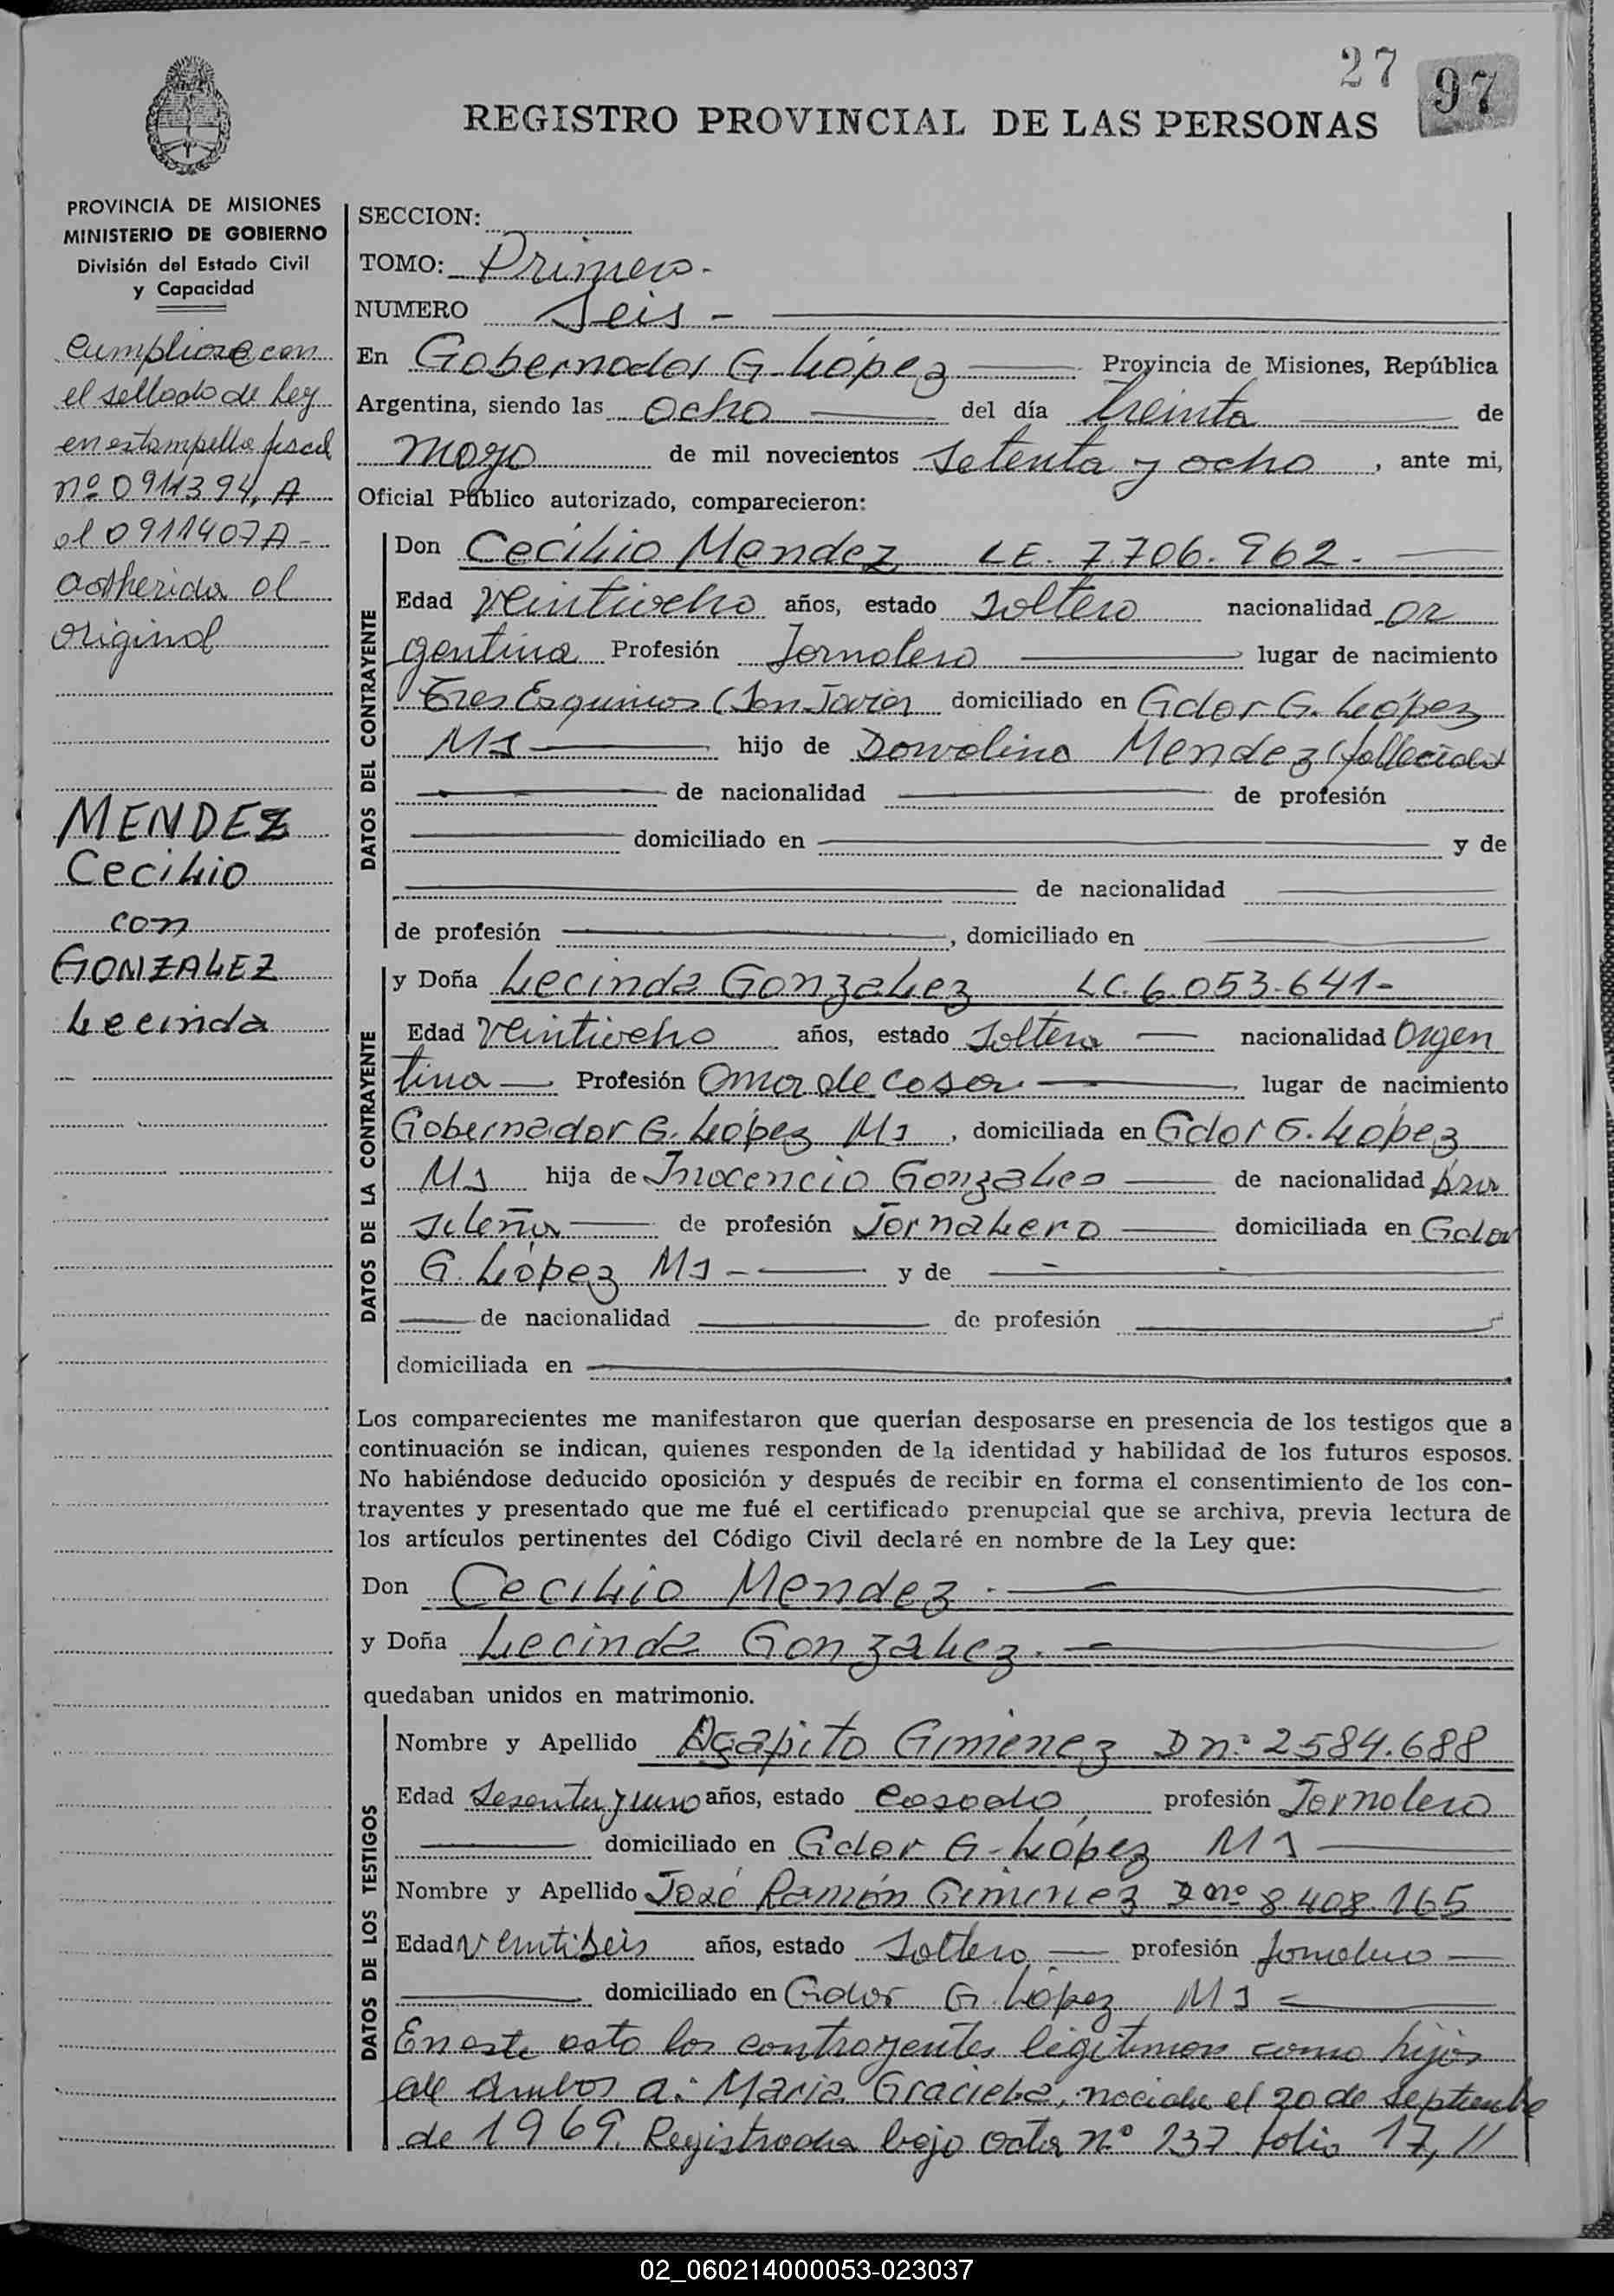 27 97
REGISTRO PROVINCIAL DE LAS PERSONAS
PROVINCIA DE MISIONES
MINISTERIO DE GOBIERNO
División del Estado Civil
y Capacidad
Cumpliose con
el sellado de Ley
en estampilla fiscal
nº 0911394, A
al 0911407 A -
adherida al
original
MENDEZ
Cecilio
con
GONZALEZ
Lecinda
SECCION:
TOMO: Primero.
NUMERO Seis -
En Gobernador G. López Provincia de Misiones, República
Argentina, siendo las ocho del día treinta de
mayo de mil novecientos setenta y ocho, ante mi,
Oficial Público autorizado, comparecieron:
DATOS DEL CONTRAYENTE
Don Cecilio Mendez LE. 7.706.962.
Edad veintiocho años, estado soltero nacionalidad ar
gentina Profesión Jornalero lugar de nacimiento
Tres Esquinas (San Javier domiciliado en Gdor G. López
Ms hijo de Dorvalino Mendez (fallecido)
de nacionalidad de profesión
domiciliado en y de
de nacionalidad
de profesión , domiciliado en
DATOS DE LA CONTRAYENTE
y Doña Lecinda Gonzalez LC. 6.053.641-
Edad veintiocho años, estado soltera nacionalidad Argen
tina Profesión Ama de casa lugar de nacimiento
Gobernador G. López Ms, domiciliada en Gdor G. López
Ms hija de Inocencio Gonzales de nacionalidad bra
sileña de profesión Jornalero domiciliada en Gdor
G. López Ms - y de
de nacionalidad de profesión
domiciliada en
Los comparecientes me manifestaron que querían desposarse en presencia de los testigos que a
continuación se indican, quienes responden de la identidad y habilidad de los futuros esposos.
No habiéndose deducido oposición y después de recibir en forma el consentimiento de los con-
trayentes y presentado que me fué el certificado prenupcial que se archiva, previa lectura de
los artículos pertinentes del Código Civil declaré en nombre de la Ley que:
Don Cecilio Mendez.
y Doña Lecinda Gonzalez.
quedaban unidos en matrimonio.
DATOS DE LOS TESTIGOS
Nombre y Apellido Agapito Gimenez D nº 2584.688
Edad Sesenta y uno años, estado casado, profesión Jornalero
domiciliado en Gdor G. López Ms
Nombre y Apellido José Ramón Gimenez D nº 8.408.165
Edad veintiseis años, estado soltero profesión Jornalero
domiciliado en Gdor G. López Ms
En este acto los contrayentes legitiman como hijos
de Ambos a: Maria Graciela, nacida el 20 de septiembre
de 1969. Registrada bajo acta nº 237 folio 17, //
02_060214000053-023037